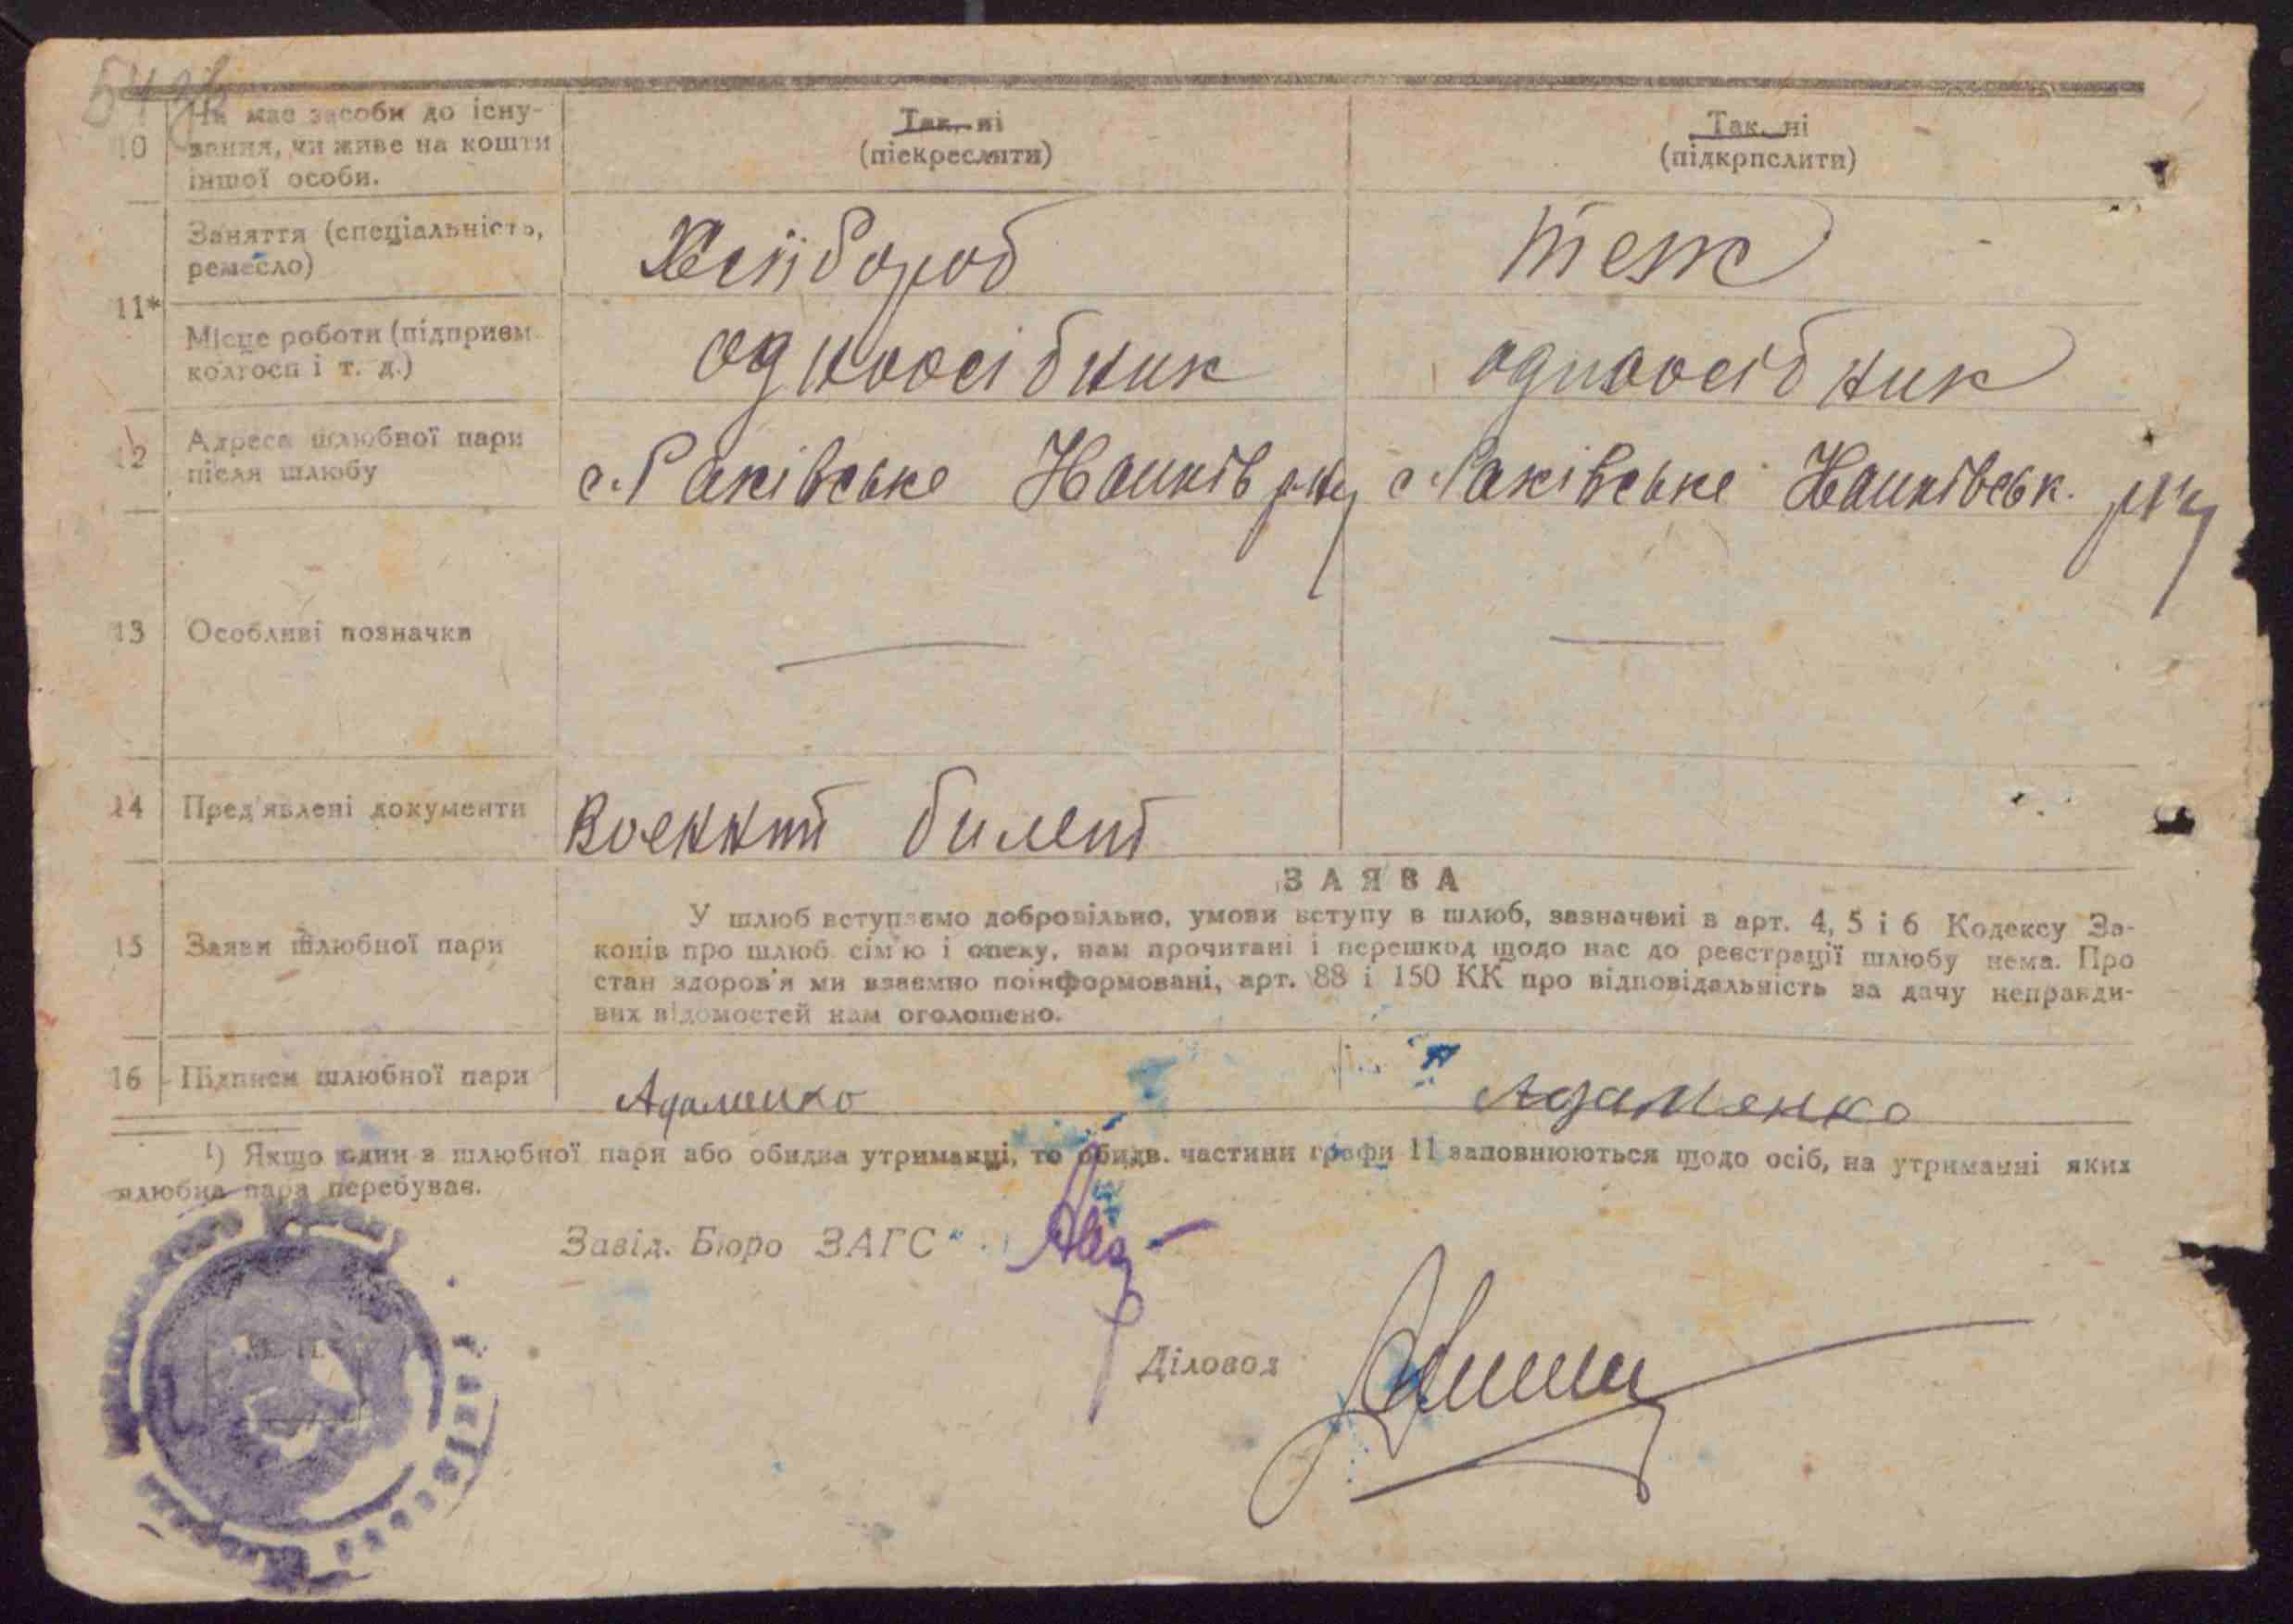 54зв
10 Чи має засоби до існу-
вання, чи живе на кошти
іншої особи.
Так, ні
(піскреслити)
Так, ні
(підкрпслити)
11*
Заняття (спеціальність,
ремесло)
Хлібороб
теж
Місце роботи (підприєм.
колгосп і т. д.)
одноосібник
одноосібник
12 Адреса шлюбної пари
після шлюбу
с. Раківське
с. Раківське
13 Особливі позначки
14 Пред'явлені документи
Военный билет
ЗАЯВА
15 Заяви шлюбної пари
У шлюб вступаємо добровільно, умови вступу в шлюб, зазначені в арт. 4, 5 і 6 Кодексу За-
конів про шлюб сім'ю і опеку, нам прочитані і перешкод щодо нас до реєстрації шлюбу нема. Про
стан здоров'я ми взаємно поінформовані, арт. 88 і 150 КК про відповідальність за дачу неправди-
вих відомостей нам оголошено.
16 Підписи шлюбної пари
Адаменко
Адаменко
¹) Якщо один з шлюбної пари або обидва утриманці, то обидв. частини графи 11 заповнюються щодо осіб, на утриманні яких
шлюбна пара перебуває.
Завід. Бюро ЗАГС
Діловод